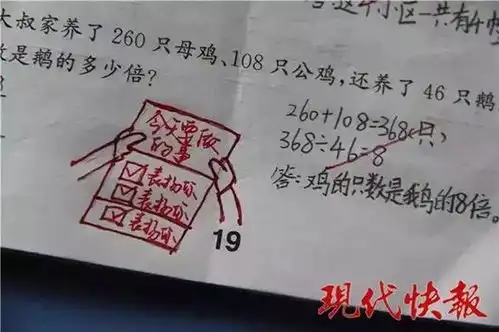 这个小区一共有4
大叔家养了260只母鸡、108只公鸡,还养了46只鹅
数是鹅的多少倍?
260+108=368(只)
368÷46=8
答:鸡的只数是鹅的8倍。
今天要做
的事
表扬你
表扬你
表扬你
19
现代快报